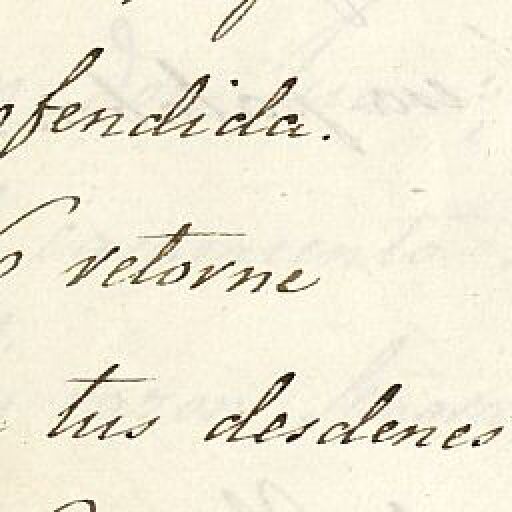 ofendida.
retorne
tus desdenes